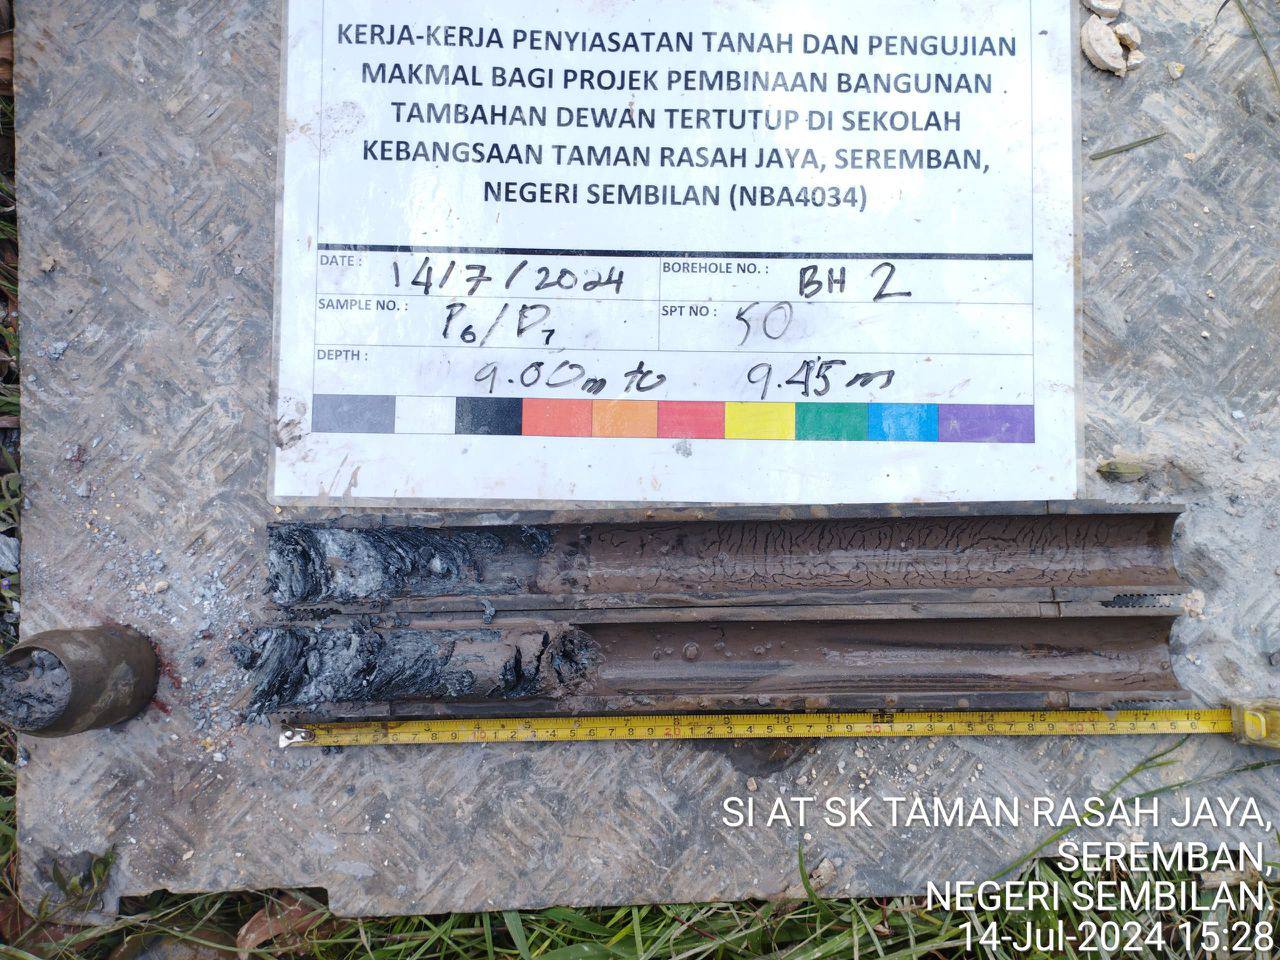 KERJA-KERJA PENYIASATAN TANAH DAN PENGUJIAN
MAKMAL BAGI PROJEK PEMBINAAN BANGUNAN
TAMBAHAN DEWAN TERTUTUP DI SEKOLAH
KEBANGSAAN TAMAN RASAH JAYA, SEREMBAN,
NEGERI SEMBILAN (NBA4034)
DATE : 14/7/2024 BOREHOLE NO. : BH 2
SAMPLE NO. : P6/D7 SPT NO : 50
DEPTH : 9.00m to 9.45m
SI AT SK TAMAN RASAH JAYA,
SEREMBAN,
NEGERI SEMBILAN.
14-Jul-2024 15:28